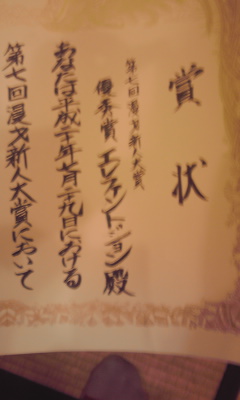 賞状
第七回漫才新人大賞
優秀賞 エレファントジョン殿
あなたは平成二十年七月二十九日における
第七回漫才新人大賞において